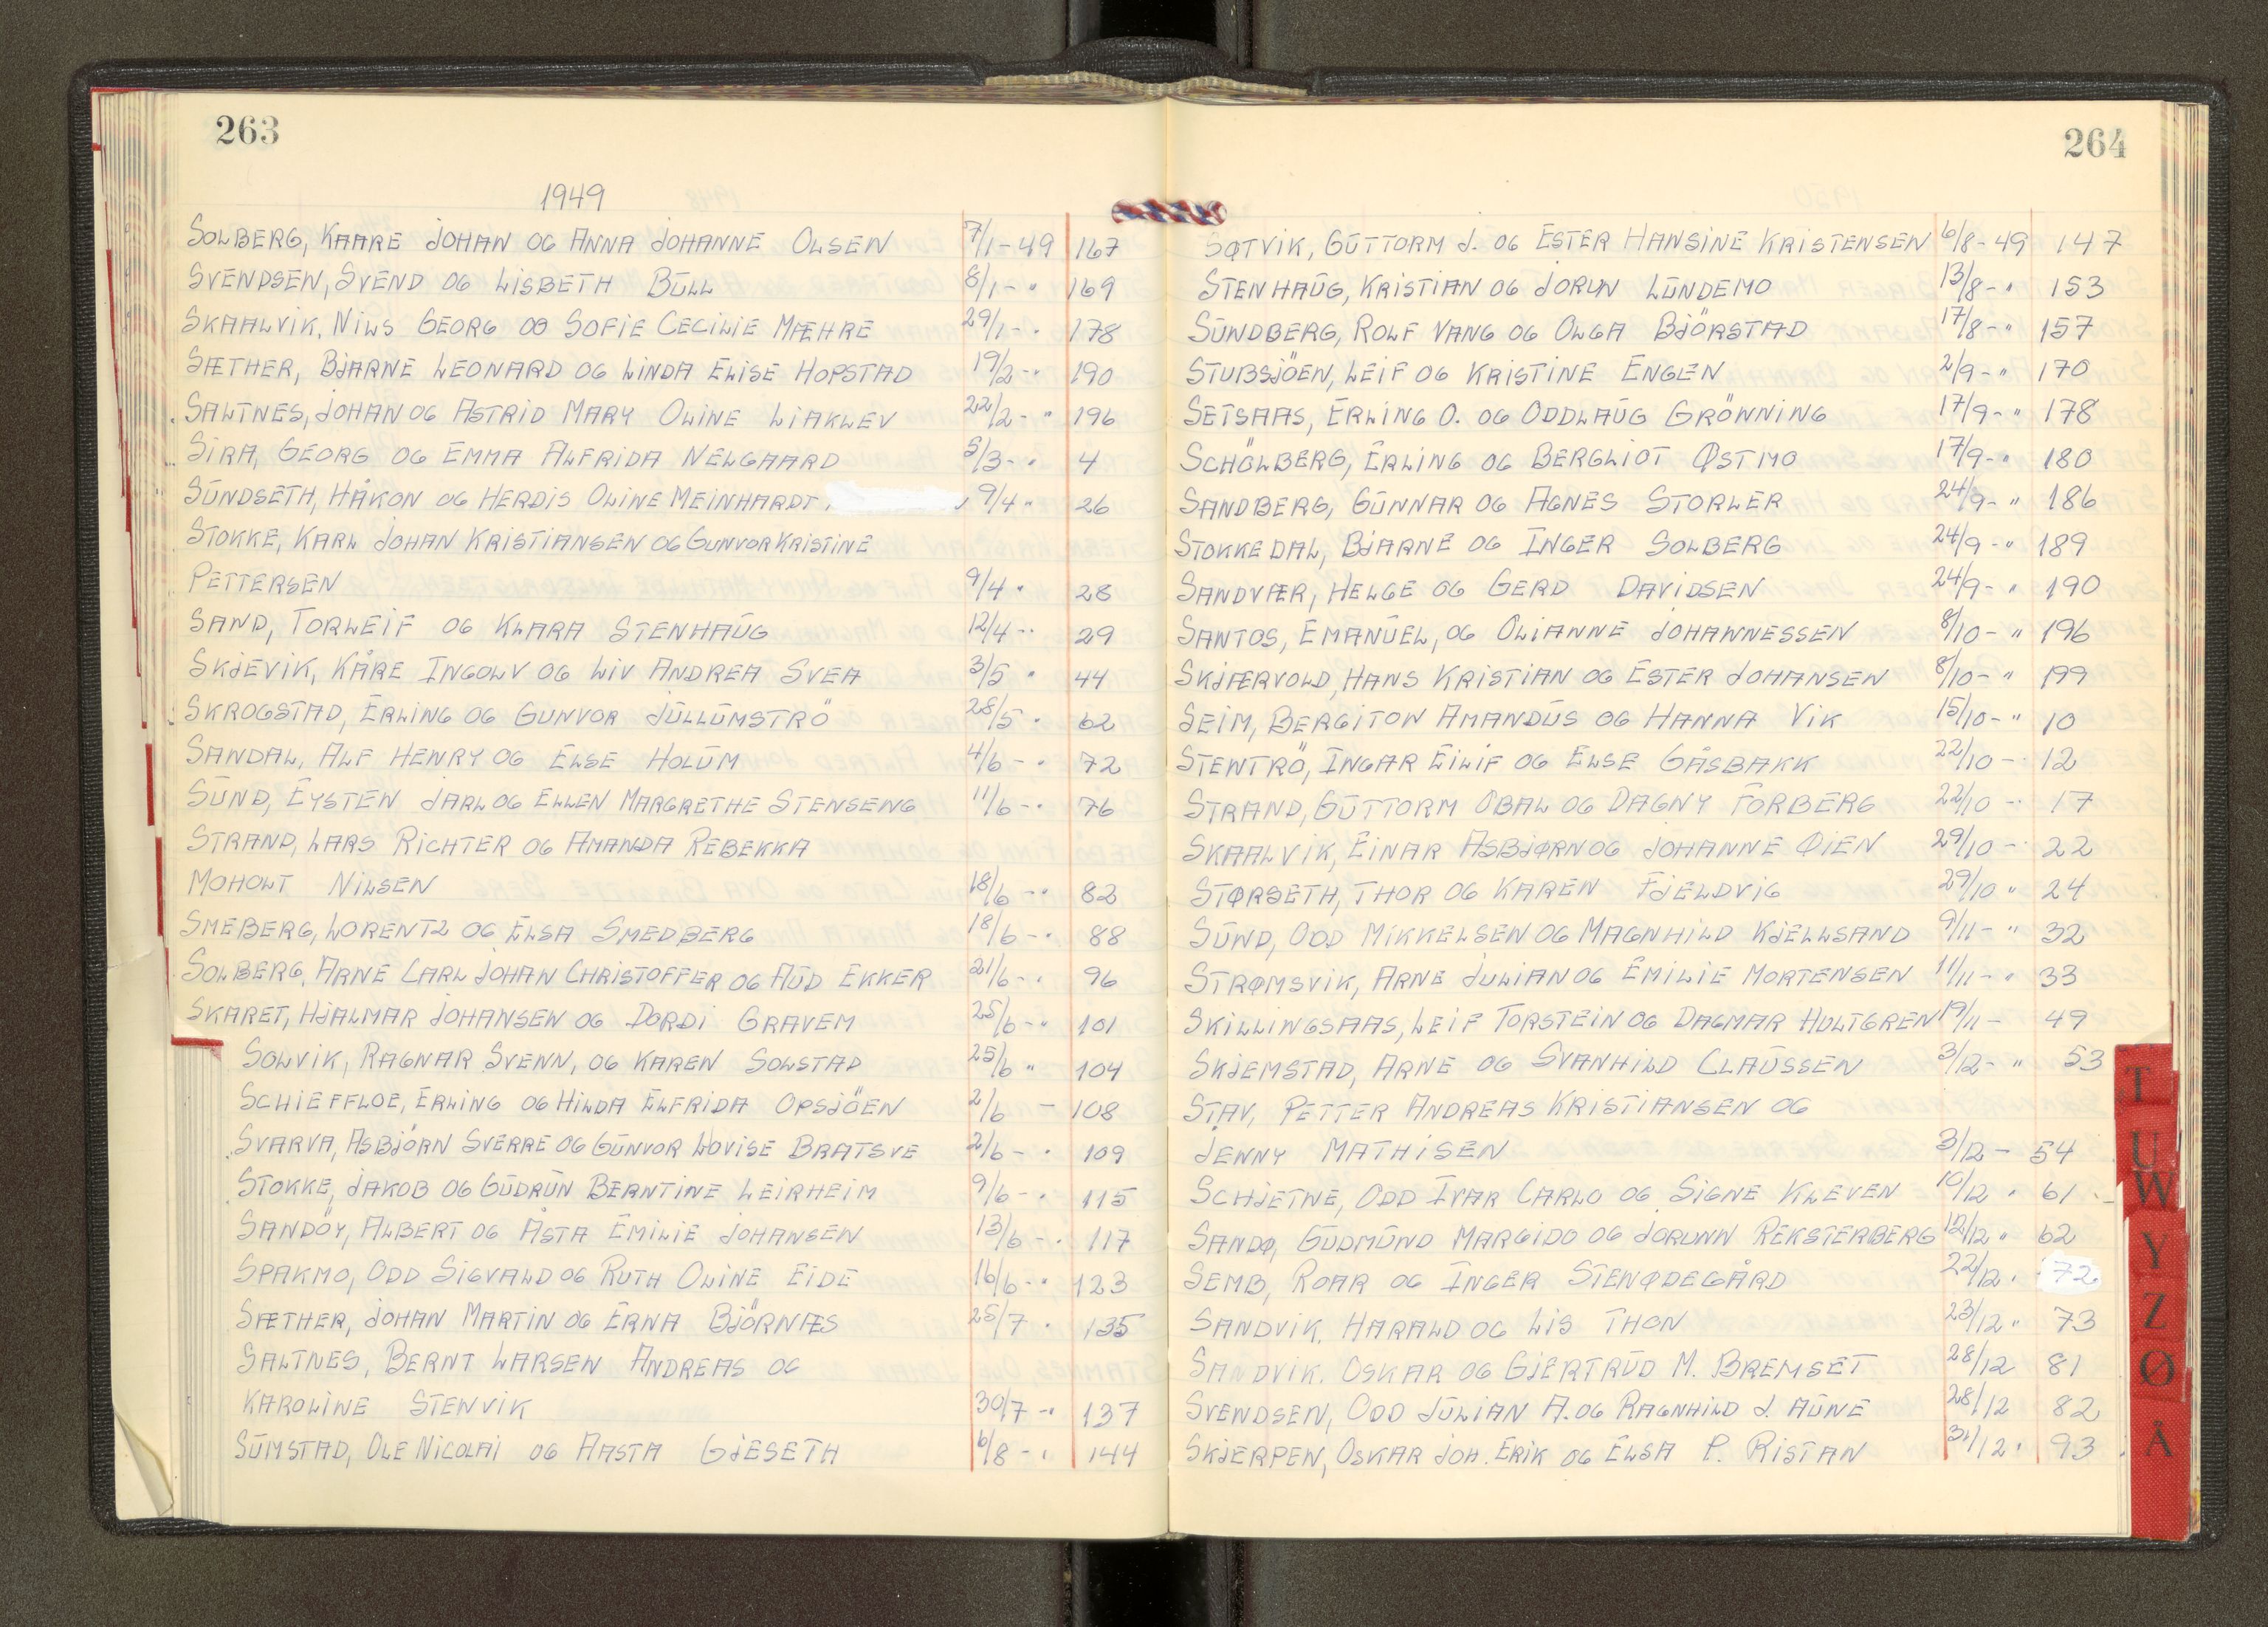 263
1949
SOLBERG, KAARE JOHAN OG ANNA JOHANNE OLSEN 7/1-49 167
SVENDSEN, SVEND OG LISBETH BŪLL 8/1-" 169
SKAALVIK, NILS GEORG OG SOFIE CECILIE MÆHRE 29/1-" 178
SÆTHER, BJARNE LEONARD OG LINDA ELISE HOPSTAD 19/2-" 190
SALTNES, JOHAN OG ASTRID MARY OLINE LIAKLEV 22/2-" 196
SIRA, GEORG OG EMMA ALFRIDA NELGAARD 5/3-" 4
SŪNDSETH, HÅKON OG HERDIS OLINE MEINHARDT. 9/4" 26
STOKKE, KARL JOHAN KRISTIANSEN OG GUNVOR KRISTINE
PETTERSEN 9/4 " 28
SAND, TORLEIF OG KLARA STENHAŪG 12/4-" 29
SKJEVIK, KÅRE INGOLV OG LIV ANDREA SVEA 3/5 " 44
SKROGSTAD, ERLING OG GUNVOR JŪLLŪMSTRÖ 28/5 " 62
SANDAL, ALF HENRY OG ELSE HOLŪM 4/6-" 72
SŪND, EYSTEN JARL OG ELLEN MARGRETHE STENSENG 11/6-" 76
STRAND, LARS RICHTER OG AMANDA REBEKKA
MOHOLT NILSEN 18/6-" 82
SMEBERG, LORENTZ OG ELSA SMEDBERG 18/6-" 88
SOLBERG, ARNE CARL JOHAN CHRISTOFFER OG AŪD EKKER 21/6-" 96
SKARET, HJALMAR JOHANSEN OG DORDI GRAVEM 25/6-" 101
SOLVIK, RAGNAR SVENN, OG KAREN SOLSTAD 25/6 " 104
SCHIEFFLOE, ERLING OG HILDA ELFRIDA OPSJÖEN 2/6 - 108
SVARVA, ASBJÖRN SVERRE OG GŪNVOR LOVISE BRATSVE 2/6-" 109
STOKKE, JAKOB OG GŪDRŪN BERNTINE LEIRHEIM 9/6-" 115
SANDÖY, ALBERT OG ÅSTA EMILIE JOHANSEN 13/6-" 117
SPAKMO, ODD SIGVALD OG RUTH OLINE EIDE 16/6-" 123
SÆTHER, JOHAN MARTIN OG ERNA BJÖRNÆS 25/7 " 135
SALTNES, BERNT LARSEN ANDREAS OG
KAROLINE STENVIK 30/7-" 137
SŪMSTAD, OLE NICOLAI OG AASTA GJESETH 6/8-" 144
264
SØTVIK, GŪTTORM J. OG ESTER HANSINE KRISTENSEN 6/8-49 147
STENHAŪG, KRISTIAN OG JORUN LŪNDEMO 13/8-" 153
SŪNDBERG, ROLF VANG OG OLGA BJÖRSTAD 17/8-" 157
STUBSJÖEN, LEIF OG KRISTINE ENGEN 2/9-" 170
SETSAAS, ERLING O. OG ODDLAŪG GRÖNNING 17/9-" 178
SCHÖLBERG, ERLING OG BERGLIOT ØSTMO 17/9-" 180
SANDBERG, GŪNNAR OG AGNES STORLER 24/9-" 186
STOKKEDAL, BJARNE OG INGER SOLBERG 24/9-" 189
SANDVÆR, HELGE OG GERD DAVIDSEN 24/9-" 190
SANTOS, EMANŪEL, OG OLIANNE JOHANNESSEN 8/10-" 196
SKJÆRVOLD, HANS KRISTIAN OG ESTER JOHANSEN 8/10-" 199
SEIM, BERGITON AMANDŪS OG HANNA VIK 15/10-" 10
STENTRÖ, INGAR EILIF OG ELSE GÅSBAKK 22/10-" 12
STRAND, GŪTTORM OBAL OG DAGNY FORBERG 22/10-" 17
SKAALVIK, EINAR ASBJØRN OG JOHANNE ØIEN 29/10-" 22
STØRSETH, THOR OG KAREN FJELDVIG 29/10 " 24
SŪND, ODD MIKKELSEN OG MAGNHILD KJELLSAND 9/11-" 32
STRØMSVIK, ARNE JULIAN OG EMILIE MORTENSEN 11/11-" 33
SKILLINGSAAS, LEIF TORSTEIN OG DAGMAR HULTGREN 19/11- 49
SKJEMSTAD, ARNE OG SVANHILD CLAŪSSEN 3/12-" 53
STAV, PETTER ANDREAS KRISTIANSEN OG
JENNY MATHISEN 3/12- 54
SCHJETNE, ODD IVAR CARLO OG SIGNE KLEVEN 10/12 " 61
SANDØ, GŪDMŪND MARGIDO OG JORUNN REKSTERBERG 12/12 " 62
SEMB, ROAR OG INGER STENØDEGÅRD 22/12 " 72
SANDVIK, HARALD OG LIS THON 23/12 " 73
SANDVIK, OSKAR OG GJERTRŪD M. BREMSET 28/12 81
SVENDSEN, ODD JŪLIAN A. OG RAGNHILD J. AŪNE 28/12 82
SKJERPEN, OSKAR JOH. ERIK OG ELSA P. RISTAN 31/12 " 93
T
U
W
Y
Z
Ø
Å